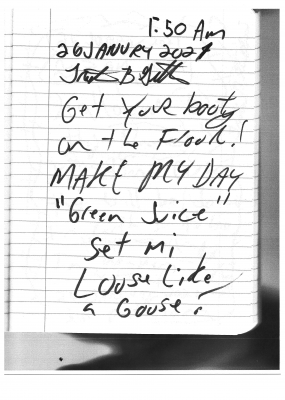 1:50 Am
26 JANURY 2021
Get Your booty
on the Floor!
MAKE MY DAY
"Green Juice"
Set Mi
Louse Like
a Gouse!